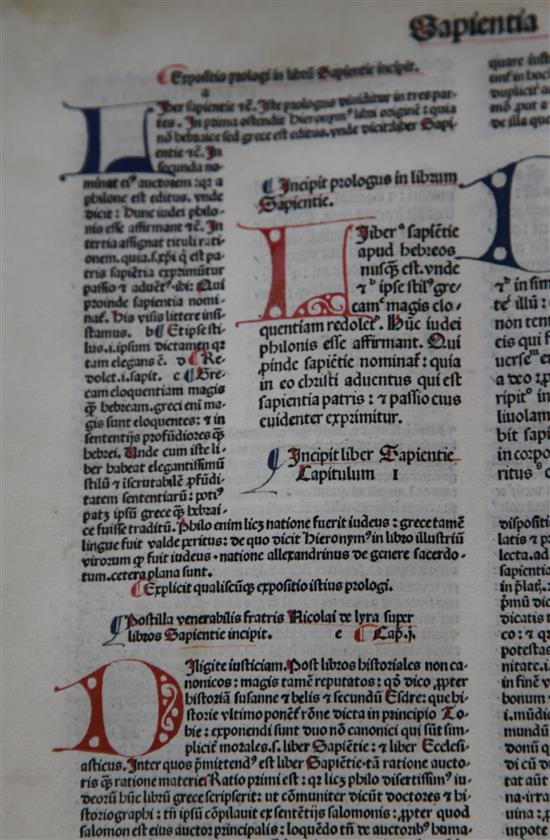 Sapientia
Expositio prologi in librū Sapientie incipit.
a
Liber sapientie ⁊c̄. Iste prologus diuiditur in tres par-
tes. In prima ostendit hieronym⁹ libri originē: quia
nō hebraice sed grece est editus. vnde dicit: liber Sapi-
entie ⁊c̄. In
secunda no-
minat ei⁹ auctorem: qr a
philone est editus. vnde
dicit: hunc iudei philo-
nis esse affirmant ⁊c̄. In
tertia assignat tituli rati-
onem. quia.s.xp̄i q̄ est pa-
tris sapiētia exprimūtur
passio ⁊ aduēt⁹.ibi: Qui
proinde sapientia nomi-
nat̄. his visis littere insi-
stamus. b Et ipse sti-
lus.i.ipsum dictamen qr
tam elegans ē. d Re-
dolet.i.sapit. c Gre-
cam eloquentiam magis
q̄ hebream.greci eni ma-
gis sunt eloquentes: ⁊ in
sententijs profūdiores q̄
hebrei. Unde cum iste li-
ber habeat elegantissimū
stilū ⁊ iscrutabilē p̄fūdi-
tatem sententiarū: poti⁹
patz ipsū grece q̄ hebrai-
ce fuisse traditū. Philo enim licz natione fuerit iudeus: grece tamē
lingue fuit valde peritus: de quo dicit hieronym⁹ in libro illustriū
virorum q̄ fuit iudeus natione allexandrinus de genere sacerdo-
tum.cetera plana sunt.
Explicit qualiscūq̄ expositio istius prologi.
Incipit prologus in librum
Sapientie.
Liber ᵃ sapiētie
apud hebreos
nusq̄ est. vnde
⁊ ᵇ ipse stil⁹ gre-
camᶜ magis elo-
quentiam redoletᵈ. Hūc iudei
philonis esse affirmant. Qui
ꝓinde sapiētie nominat̄: quia
in eo christi aduentus qui est
sapientia patris: ⁊ passio eius
euidenter exprimitur.
Incipit liber Sapientie
Capitulum I
Postilla venerabilis fratris Nicolai de lyra super
libros Sapientie incipit. e Cap.j.
Diligite iusticiam. Post libros historiales non ca-
nonicos: magis tamē reputatos: qō dico ꝓpter
historiā susanne ⁊ belis ⁊ secundū Esdre: que hi-
storie vltimo ponēt̄ rōne dicta in principio To-
bie: exponendi sunt duo nō canonici qui sūt sim-
plicit̄ morales.s. liber Sapiētie: ⁊ liber Ecclesi-
asticus. Inter quos p̄mittend⁹ est liber Sapiētie tā ratione aucto-
ris q̄ ratione materiei Ratio primi est: qr licz philo disertissim⁹ iu-
deorū hūc librū grece scripserit: ut cōmuniter dicūt doctores ⁊ hi-
storiographi: tn̄ ipsū cōpilauit ex sententijs salomonis: ꝓpter quod
salomon est eius auctor principalis: loquēdo tn̄ de auctorib⁹ huma-
quare iust
unt in hoc
duplicit̄ a
mō put a
de illa que
in sim
te illū:
non tent
eis qui f
a deo:
ripit in
liuolam
bit sapi
in corpo
ritus
dispositi
latis ⁊ p
lecta.ad
sapientia
dicatis
co: ⁊ q
potestas
nitate.i
in finē v
bonum
i.mūdic
mundū
donū q
di cū di
tat aūt